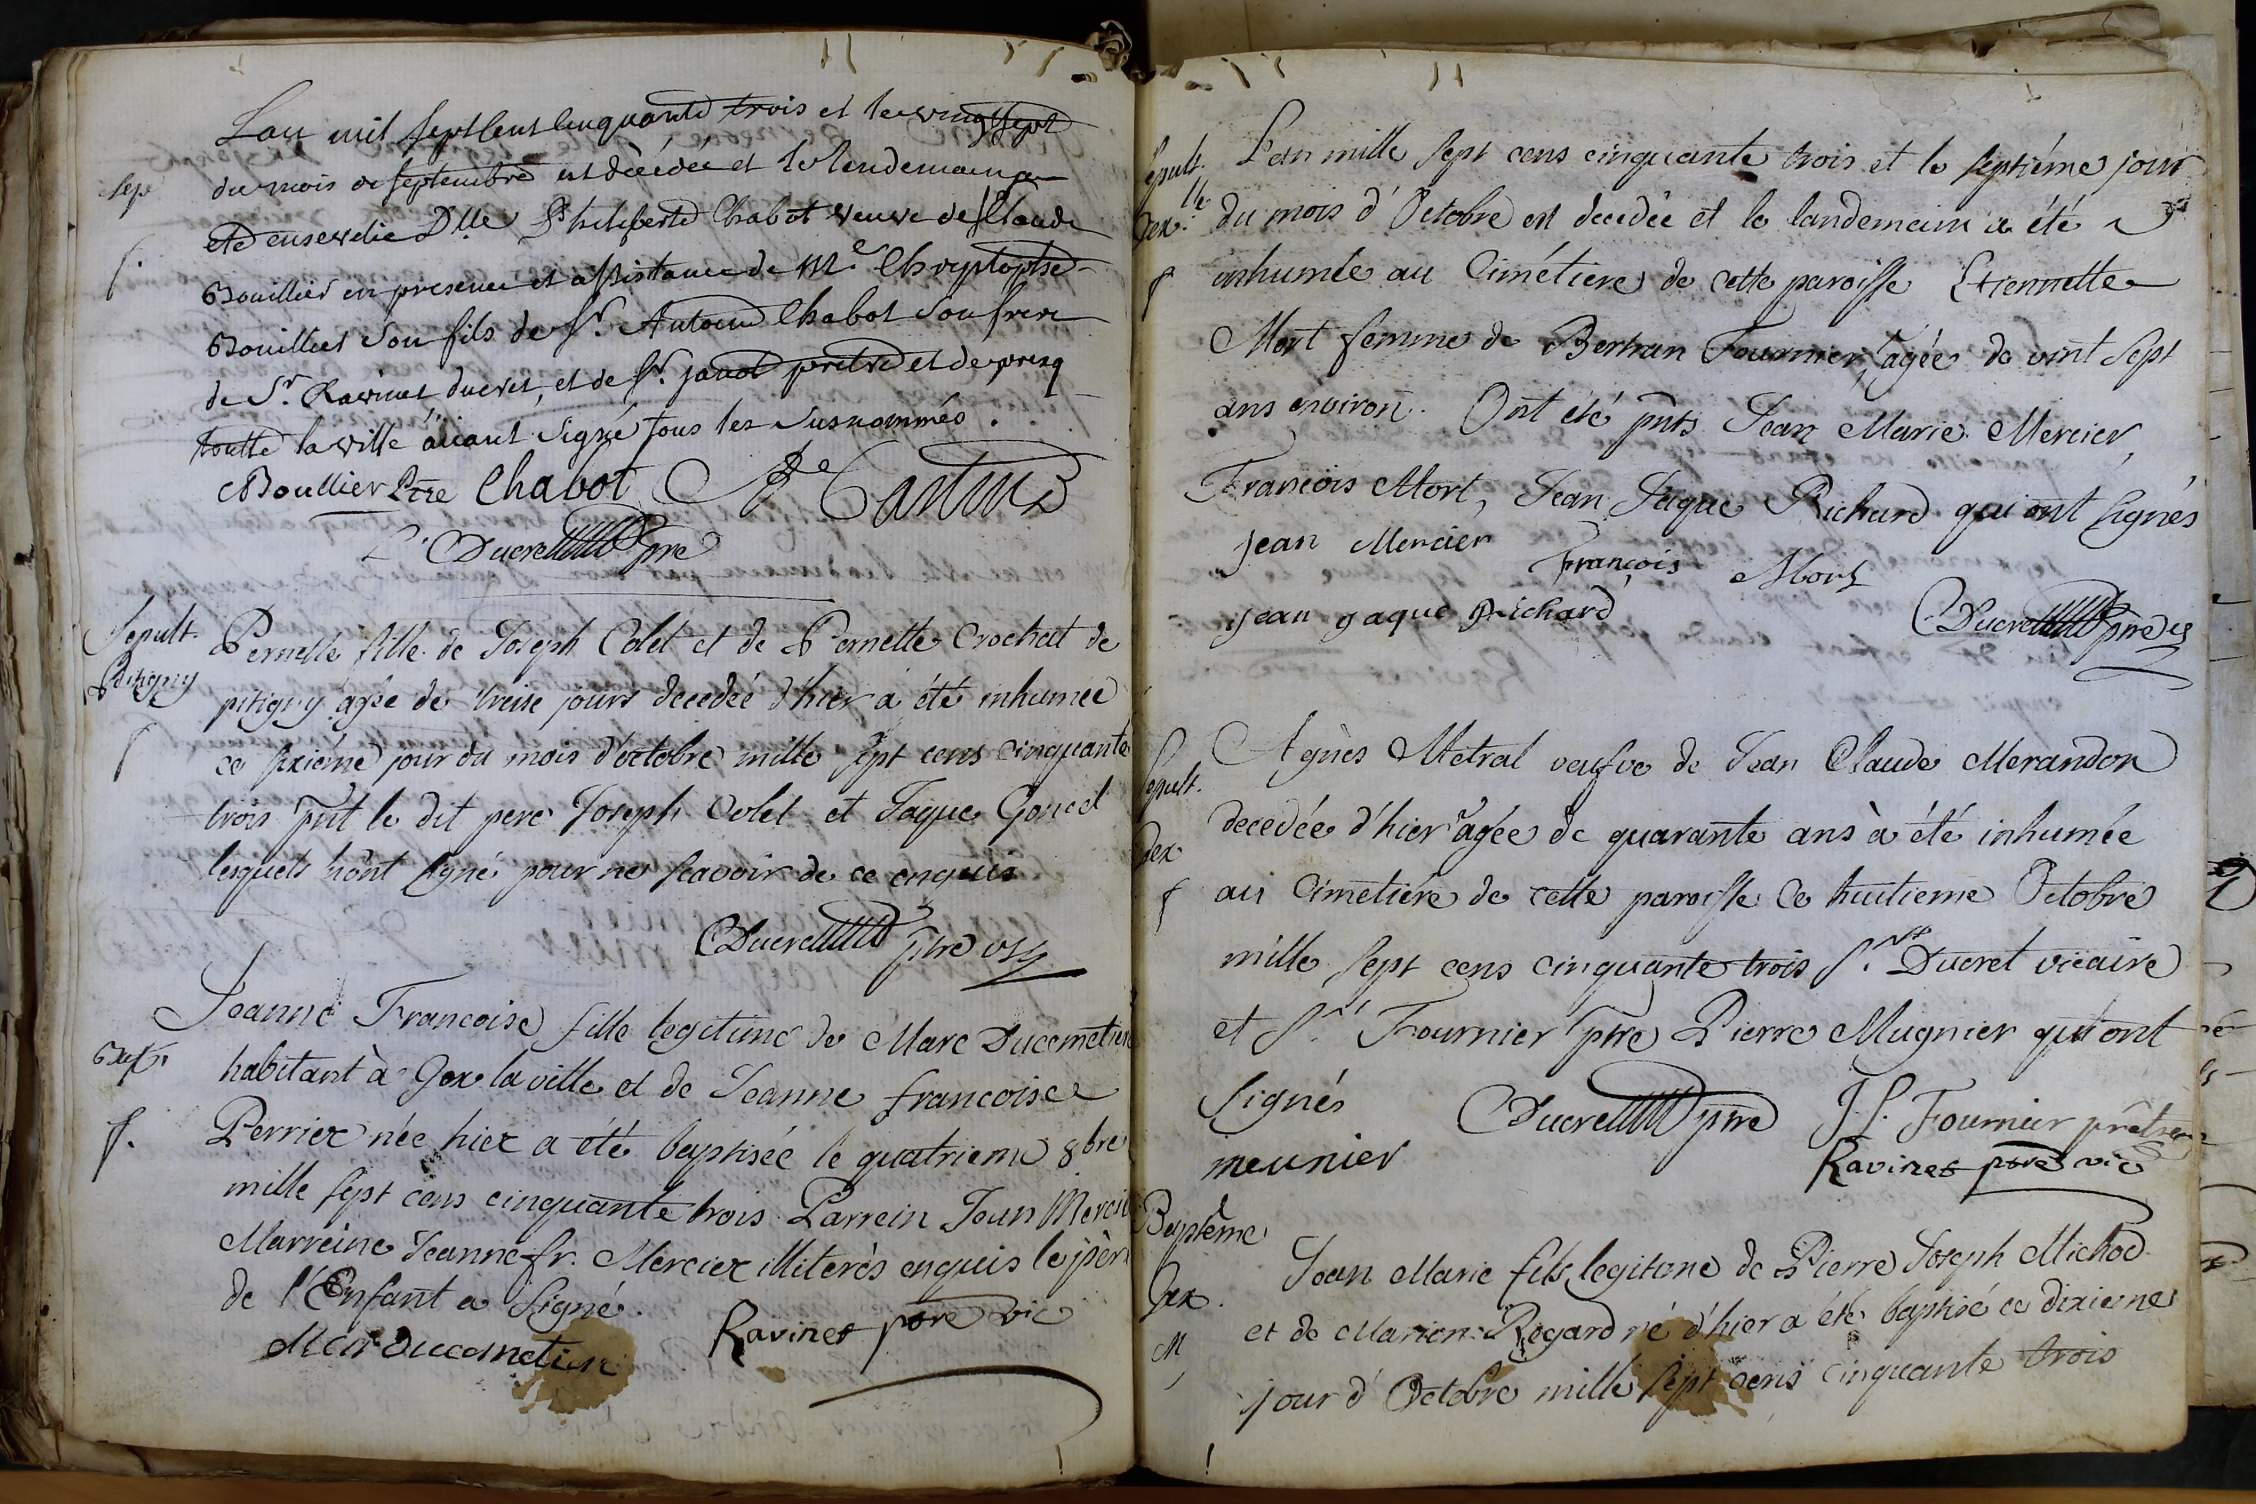 Lan mil sept cent cinquante trois et le vingt sept
Sep
du mois de septembre est décédée et le lendemain a
f.
eté ensevelie Dlle Philiberte Chabot veuve de Claude
Bouillier en presence et assistance de Me Chryptophe
Bouillier son fils de Sr. Antoine Chabot son frere
de Sr. Ravinet ducret, et de Sr. janot pretre et de presq
toutte la ville áiant signé tous les susnommés.
Boullier Ptre Chabot
Ducret pre
Sepult.
Pitigny
f
Pernette fille de Joseph Colet et de Pernette Crochat de
pitigny agée de treise jours decedeé d'hier a été inhumée
ce sixiéme jour du mois d'octobre mille sept cens cinquante
trois pnt le dit pere Joseph Colet et Jaque Goncel
lesquels n'ont signé pour ne scavoir de ce enquis
Ducret ptre
Bap.
f.
Jeanne Francoise fille legitime de Marc Ducometier
habitant à Gex la ville et de Jeanne francoise
Perrier née hier a été baptisée le quatrieme 8bre
mille sept cens cinquante trois Parrein Jean Mercier
Marreine Jeanne fr. Mercier illiterès enquis le père
de l'Enfant a signé.
Mar ducometier Ravinet ptre vic
Sepult.
Gex. lle
f
L'an mille sept cens cinquante trois et le septiéme jour
du mois d'Octobre est decedée et le landemain a été
inhumée au Cimétiere de cette paroisse Etiennette
Mort femme de Bertran Fournier, agée de vint sept
ans environ. Ont été pnts Jean Marie Mercier,
François Mort, Jean Jaque Richard qui ont signés
jean Mercier François Mort
jean jaque Richard Ducret pre
Sepult.
Gex
f
Agnès Metral veufve de Jean Claude Merandon
decedée d'hier agée de quarante ans à été inhumée
au Cimetiére de cette paroisse Ce huitieme Octobre
mille sept cens cinquante trois Srs. Ducret vicaire
et Sr. Fournier ptre Pierre Mugnier qui ont
signés Ducret pre J.S. Fournier prêtre
meunier Ravinet ptre vic
Baptême
Gex.
M
Jean Marie fils legitime de Pierre Joseph Michod
et de Marion Regard né d'hier a été baptisé ce dixieme
jour d'Octobre mille sept cens cinquante trois